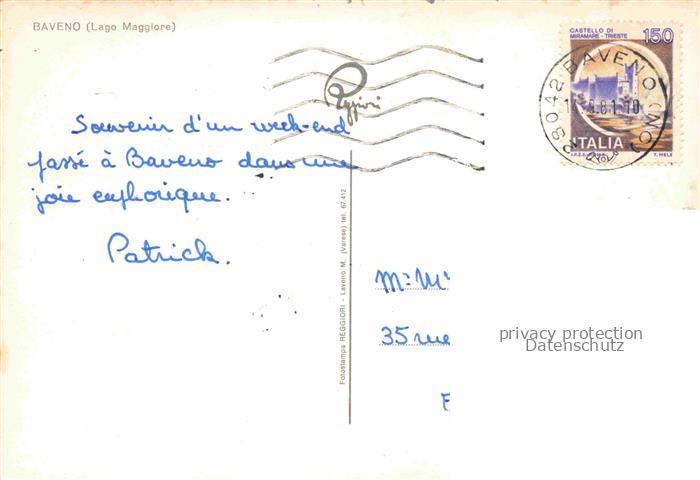 BAVENO (Lago Maggiore)
CASTELLO DI
MIRAMARE - TRIESTE
150
28042 BAVENO (NO)
ITALIA
T. MELE
Reggiori
Souvenir d'un week-end
passé à Baveno dans une
joie euphorique.
Patrick.
Fotostampa REGGIORI - Laveno M. (Varese) tel. 67.412
35 rue
privacy protection
Datenschutz